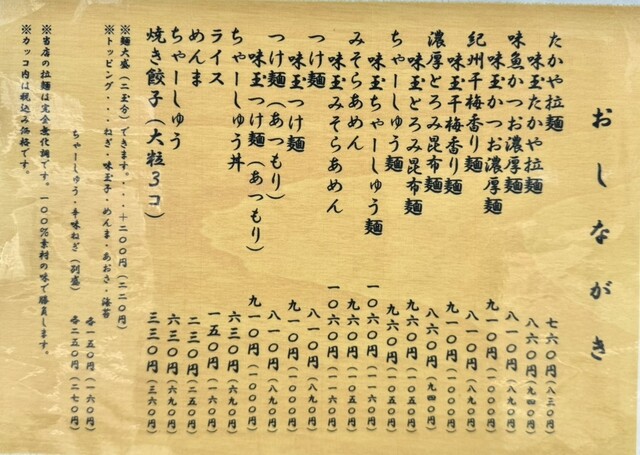 おしながき
たかや拉麺 七六〇円(八三〇円)
味玉たかや拉麺 八六〇円(九四〇円)
味魚かつお濃厚麺 八一〇円(八九〇円)
味玉かつお濃厚麺 九一〇円(一〇〇〇円)
紀州干梅香り麺 八一〇円(八九〇円)
味玉干梅香り麺 九一〇円(一〇〇〇円)
濃厚とろみ昆布麺 八六〇円(九四〇円)
味玉とろみ昆布麺 九六〇円(一〇五〇円)
ちゃーしゅう麺 九六〇円(一〇五〇円)
味玉ちゃーしゅう麺 一〇六〇円(一一六〇円)
みそらあめん 九六〇円(一〇五〇円)
味玉みそらあめん 一〇六〇円(一一六〇円)
つけ麺 八一〇円(八九〇円)
味玉つけ麺 九一〇円(一〇〇〇円)
つけ麺(あつもり) 八一〇円(八九〇円)
味玉つけ麺(あつもり) 九一〇円(一〇〇〇円)
ちゃーしゅう丼 六三〇円(六九〇円)
ライス 一五〇円(一六〇円)
めんま 二三〇円(二五〇円)
ちゃーしゅう 六三〇円(六九〇円)
焼き餃子(大粒3コ) 三三〇円(三六〇円)
※麺大盛(二玉分)できます。・・・+二〇〇円(二二〇円)
※トッピング・・・ねぎ・味玉子・めんま・あおさ・海苔 各一五〇円(一六〇円)
ちゃーしゅう・辛味ねぎ(別盛) 各二五〇円(二七〇円)
※当店の拉麺は完全無化調です。一〇〇%素材の味で勝負します。
※カッコ内は税込み価格です。